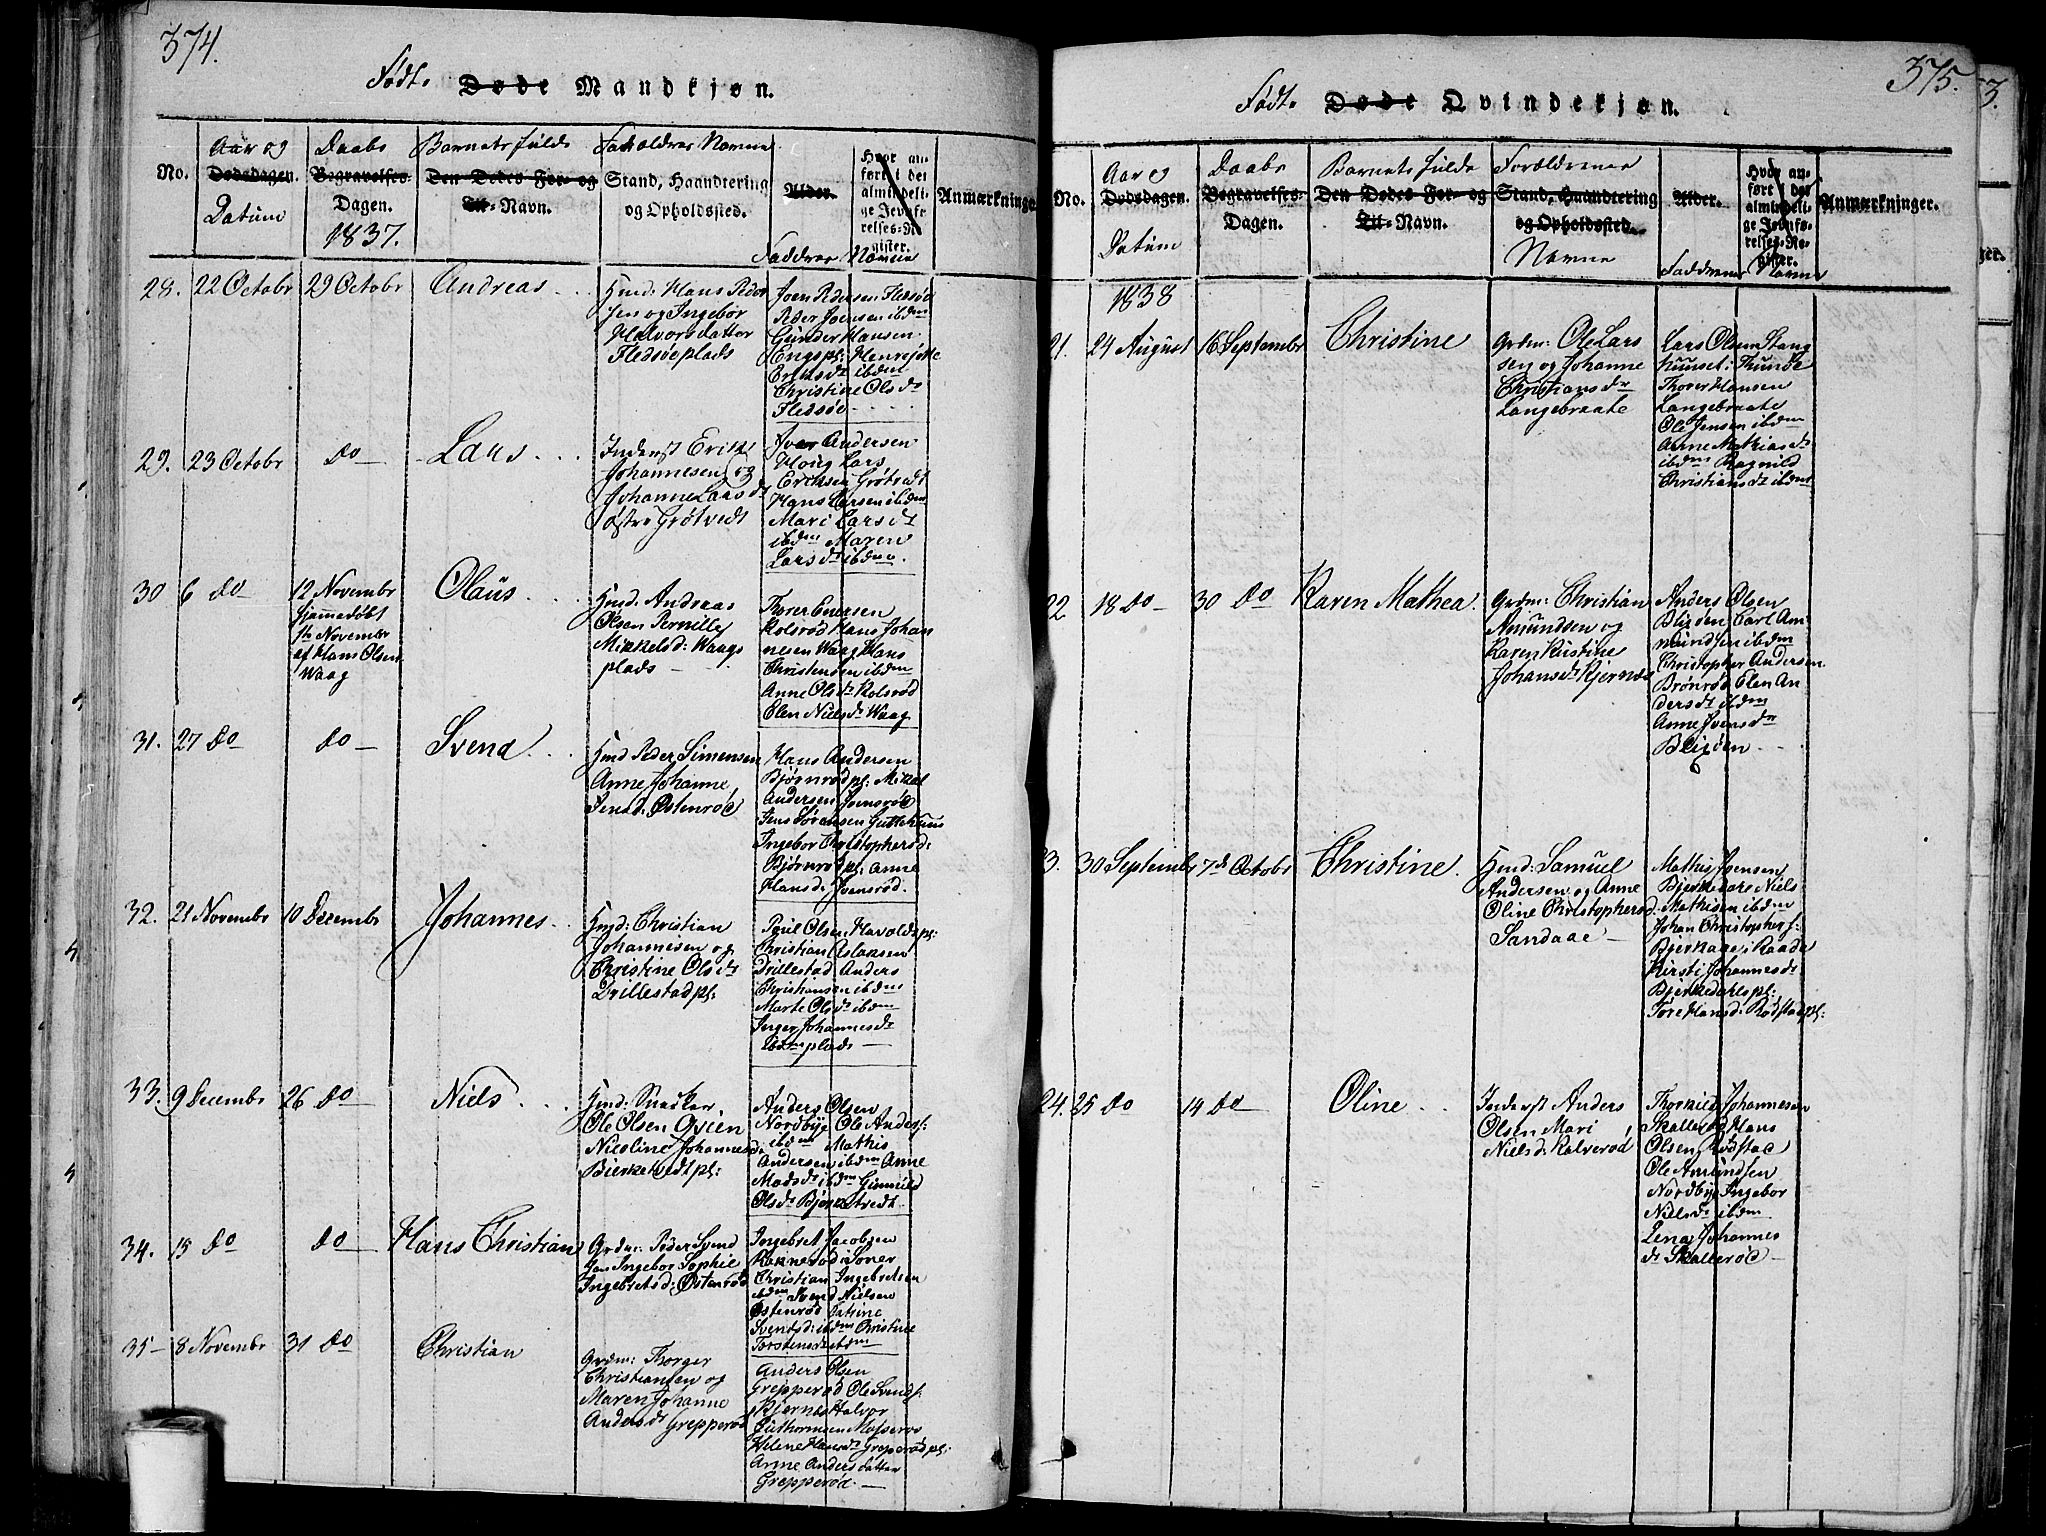 374.
Födte Døde Mandkjøn.
No.
Aar og
Dødsdagen.
Datum
Daabs
Begravelses-
Dagen.
1837.
Barnets fulde
Den Dødes For- og
Til-Navn.
Foræeldres Navne
Stand, Haandtering
og Opholdssted.
Alder.
Faddres Navne
Hvor an-
ført i det
almindeli-
ge Jevnfø-
relses-Re-
gister.
Anmærkninger
28. 22 Octobr 29 Octobr Andreas
Hmd: Hans Peder
sen og Ingebor
Halvorsdatter
Fledsøeplads
Joen Pedersen Fledsøe
Peder Joensen ibdm
Gunder Hansen
Engspl: Henrjette
Eriksdr ibdm
Christine Olsdr
Fledsøe
29. 23 Octobr do Lars
Inderst Erik
Johannesen og
Johanne Larsdr
østre Grøtvedt
Ivar Andersen
Houg Lars
Eriksen Grøtvedt
Hans Larsen ibdm
Mari Larsdr
ibdm Maren
Larsdr ibdm.
30 6 do 12 Novembr Olaus
hjemmedøbt
Novembr
af Hans Olsen
Waag
Hmd: Andreas
Olsen Pernille
Mikkelsd: Waags
plads
Thorer Evensen
Kolsrød Hans Johan
nesen Waag Hans
Christensen ibdm
Anne Olsdr Kolsrød
Elen Nielsdr Waag
31. 27 do do Svend
Hmd Peder Simensen
Anne Johanne
Jensd: Østenrød
Hans Andersen
Bjørnrødpl: Mikel
Andersen Joensrød
Jens Sørensen Guttehuus
Ingebor Christophersd:
Bjørnrødpl: Anne
Hansd: Joensrød.
32. 21 Novembr 10 Decembr Johannes
Hmd: Christian
Johannesen og
Christine Olsdr
Drillestadpl:
Poul Olsen Haroldspl:
Christian Aslaksen
Drillestad Anders
Christiansen ibdm
Marte Olsdr ibdm
Inger Johannesdr
ibdm plads
33. 9 Decembr 26 do Niels
Hmd: Snedker
Ole Olsen Qvien
Nicoline Johannesd:
Bjerketvedtpl:
Anders Olsen
Nordbye Ole Anders:
ibdm Mathis
Andersen ibdm Anne
Madsdr ibdm Gunnild
Olsdr Bjerketvedt.
34. 15 do do Hans Christian
Grdm: Peder Svend
sen Ingebor Sophie
Ingebretsd: Østenrød
Ingebret Jacobsen
Rannerød i Soner
Christian Ingebretsen
ibdm Svend Nielsen
Østenrød Catrine
Svendsd: ibdm Christine
Torstensdr ibdm
35 8 Novembr 31 do Christian
Grdm: Thorger
Christiansen og
Maren Johanne
Andersdr Grepperød
Anders Olsen
Grepperød Ole Svends:
Bjernes Halvor
Guthormsen
Helene Hansdr Greperødpl:
Anne Andersdatter
Grepperød.
375.
Födte Døde Qvindekjøn.
No.
Aar og
Dødsdagen.
Datum
Daabs
Begravelses-
Dagen.
Barnets fulde
Den Dødes For- og
Til-Navn.
Forældrenes
Stand, Haandtering
og Opholdssted.
Navne
Alder.
Faddrenes Navne
Hvor an-
ført i det
almindeli-
ge Jevnfø-
relses-Re-
gister.
Anmærkninger.
1838
21. 24 August 16 Septembr Christine
Grdm: Ole Lars
sen og Johanne
Christiansdr
Langebraate
Lars Olsen Stang
huuset: Thunde
Thorer Hansen
Langebraate
Ole Jensen ibdm
Anne Mathiasdr
ibdm Ragnild
Christiansdr ibdm
22 18 do 30 do Karen Mathea.
Grdm: Christian
Amundsen og
Karen Kristine
Johansdr Kjernæs
Anders Olsen
Blixøen Carl Am
mundsen ibdm
Christopher Andersen
Brønrød Elen An
dersdr ibdm
Anne Joensdr
Blixøen
23. 30 Septembr 7de Octobr Christine.
Hmd: Samuel
Andersen og Anne
Oline Christophersd:
Sandaae
Mathis Joensen
Bjerkedals Niels
Mathisen ibdm
Johan Christophers:
Bjerkaae i Raade
Kirsti Johannesdr
Bjerkedalspl:
Tore Hansd: Rødstadpl:
24. 25 do 14 do Oline
Inderst Anders
Olsen Mari
Nielsd: Kalverød
Thorkild Johannesen
Skallerød Hans
Olsen Rødstad
Ole Amundsen
Nordbye Ingebor
Nielsdr ibdm
Lena Johannes
dr Skallerød